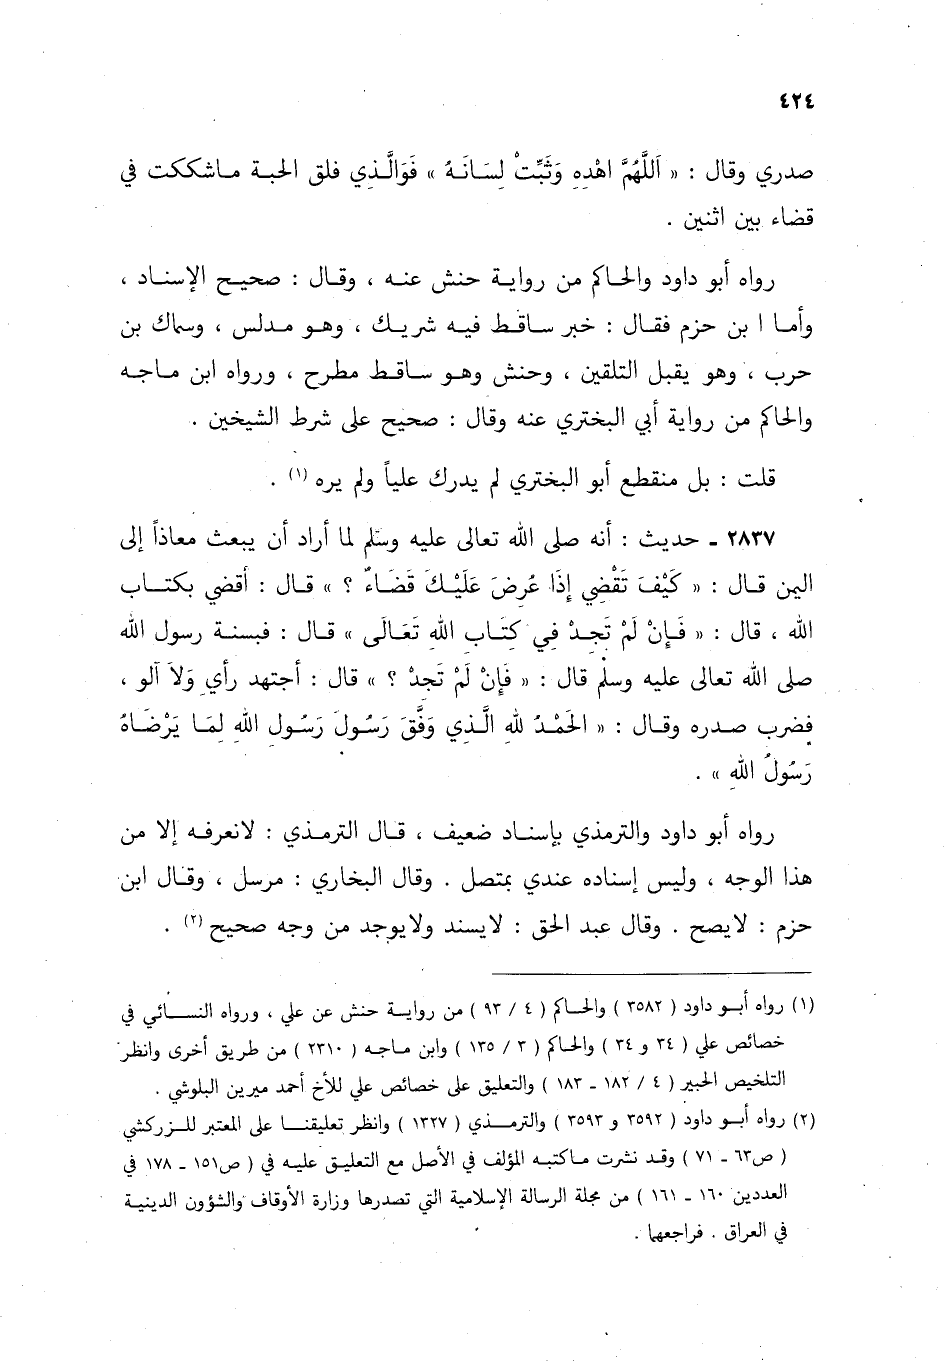 ٤٢٤
صدري وقال : « اَللَّهُمَّ اهْدِهِ وَثَبِّتْ لِسَانَهُ » فَوَالَّذي فلق الحبة ماشككت في
قضاء بين اثنين .
رواه أبو داود والحاكم من رواية حنش عنه ، وقال : صحيح الإسناد ،
وأما ا بن حزم فقال : خبر ساقط فيه شريك ، وهو مدلس ، وسماك بن
حرب ، وهو يقبل التلقين ، وحنش وهو ساقط مطرح ، ورواه ابن ماجه
والحاكم من رواية أبي البختري عنه وقال : صحيح على شرط الشيخين .
قلت : بل منقطع أبو البختري لم يدرك علياً ولم يره (١) .
٢٨٣٧ - حديث : أنه صلى الله تعالى عليه وسلم لما أراد أن يبعث معاذاً إلى
اليمن قال : « كَيْفَ تَقْضِي إِذَا عُرِضَ عَلَيْكَ قَضَاءٌ ؟ » قال : أقضي بكتاب
الله ، قال : « فَإِنْ لَمْ تَجِدْ فِي كِتَابِ اللهِ تَعَالَى » قال : فبسنة رسول الله
صلى الله تعالى عليه وسلم قال : « فَإِنْ لَمْ تَجِدْ ؟ » قال : أجتهد رأي وَلاَ آلو ،
فضرب صدره وقال : « الحَمْدُ للهِ الَّذي وَفَّقَ رَسُولَ رَسُولِ اللهِ لِمَا يَرْضَاهُ
رَسُولُ اللهِ » .
رواه أبو داود والترمذي بإسناد ضعيف ، قال الترمذي : لانعرفه إلا من
هذا الوجه ، وليس إسناده عندي بمتصل . وقال البخاري : مرسل ، وقال ابن
حزم : لايصح . وقال عبد الحق : لايسند ولايوجد من وجه صحيح (٢) .
(١) رواه أبو داود ( ٣٥٨٢ ) والحاكم ( ٤ / ٩٣ ) من رواية حنش عن علي ، ورواه النسائي في
خصائص علي ( ٣٤ و ٣٤ ) والحاكم ( ٣ / ١٣٥ ) وابن ماجه ( ٢٣١٠ ) من طريق أخرى وانظر
التلخيص الحبير ( ٤ / ١٨٢ - ١٨٣ ) والتعليق على خصائص علي للأخ أحمد ميرين البلوشي .
(٢) رواه أبو داود ( ٣٥٩٢ و ٣٥٩٣ ) والترمذي ( ١٣٢٧ ) وانظر تعليقنا على المعتبر للزركشي
( ص٦٣ - ٧١ ) وقد نشرت ماكتبه المؤلف في الأصل مع التعليق عليه في ( ص١٥١ - ١٧٨ في
العددين ١٦٠ - ١٦١ ) من مجلة الرسالة الإسلامية التي تصدرها وزارة الأوقاف والشؤون الدينية
في العراق . فراجعها .